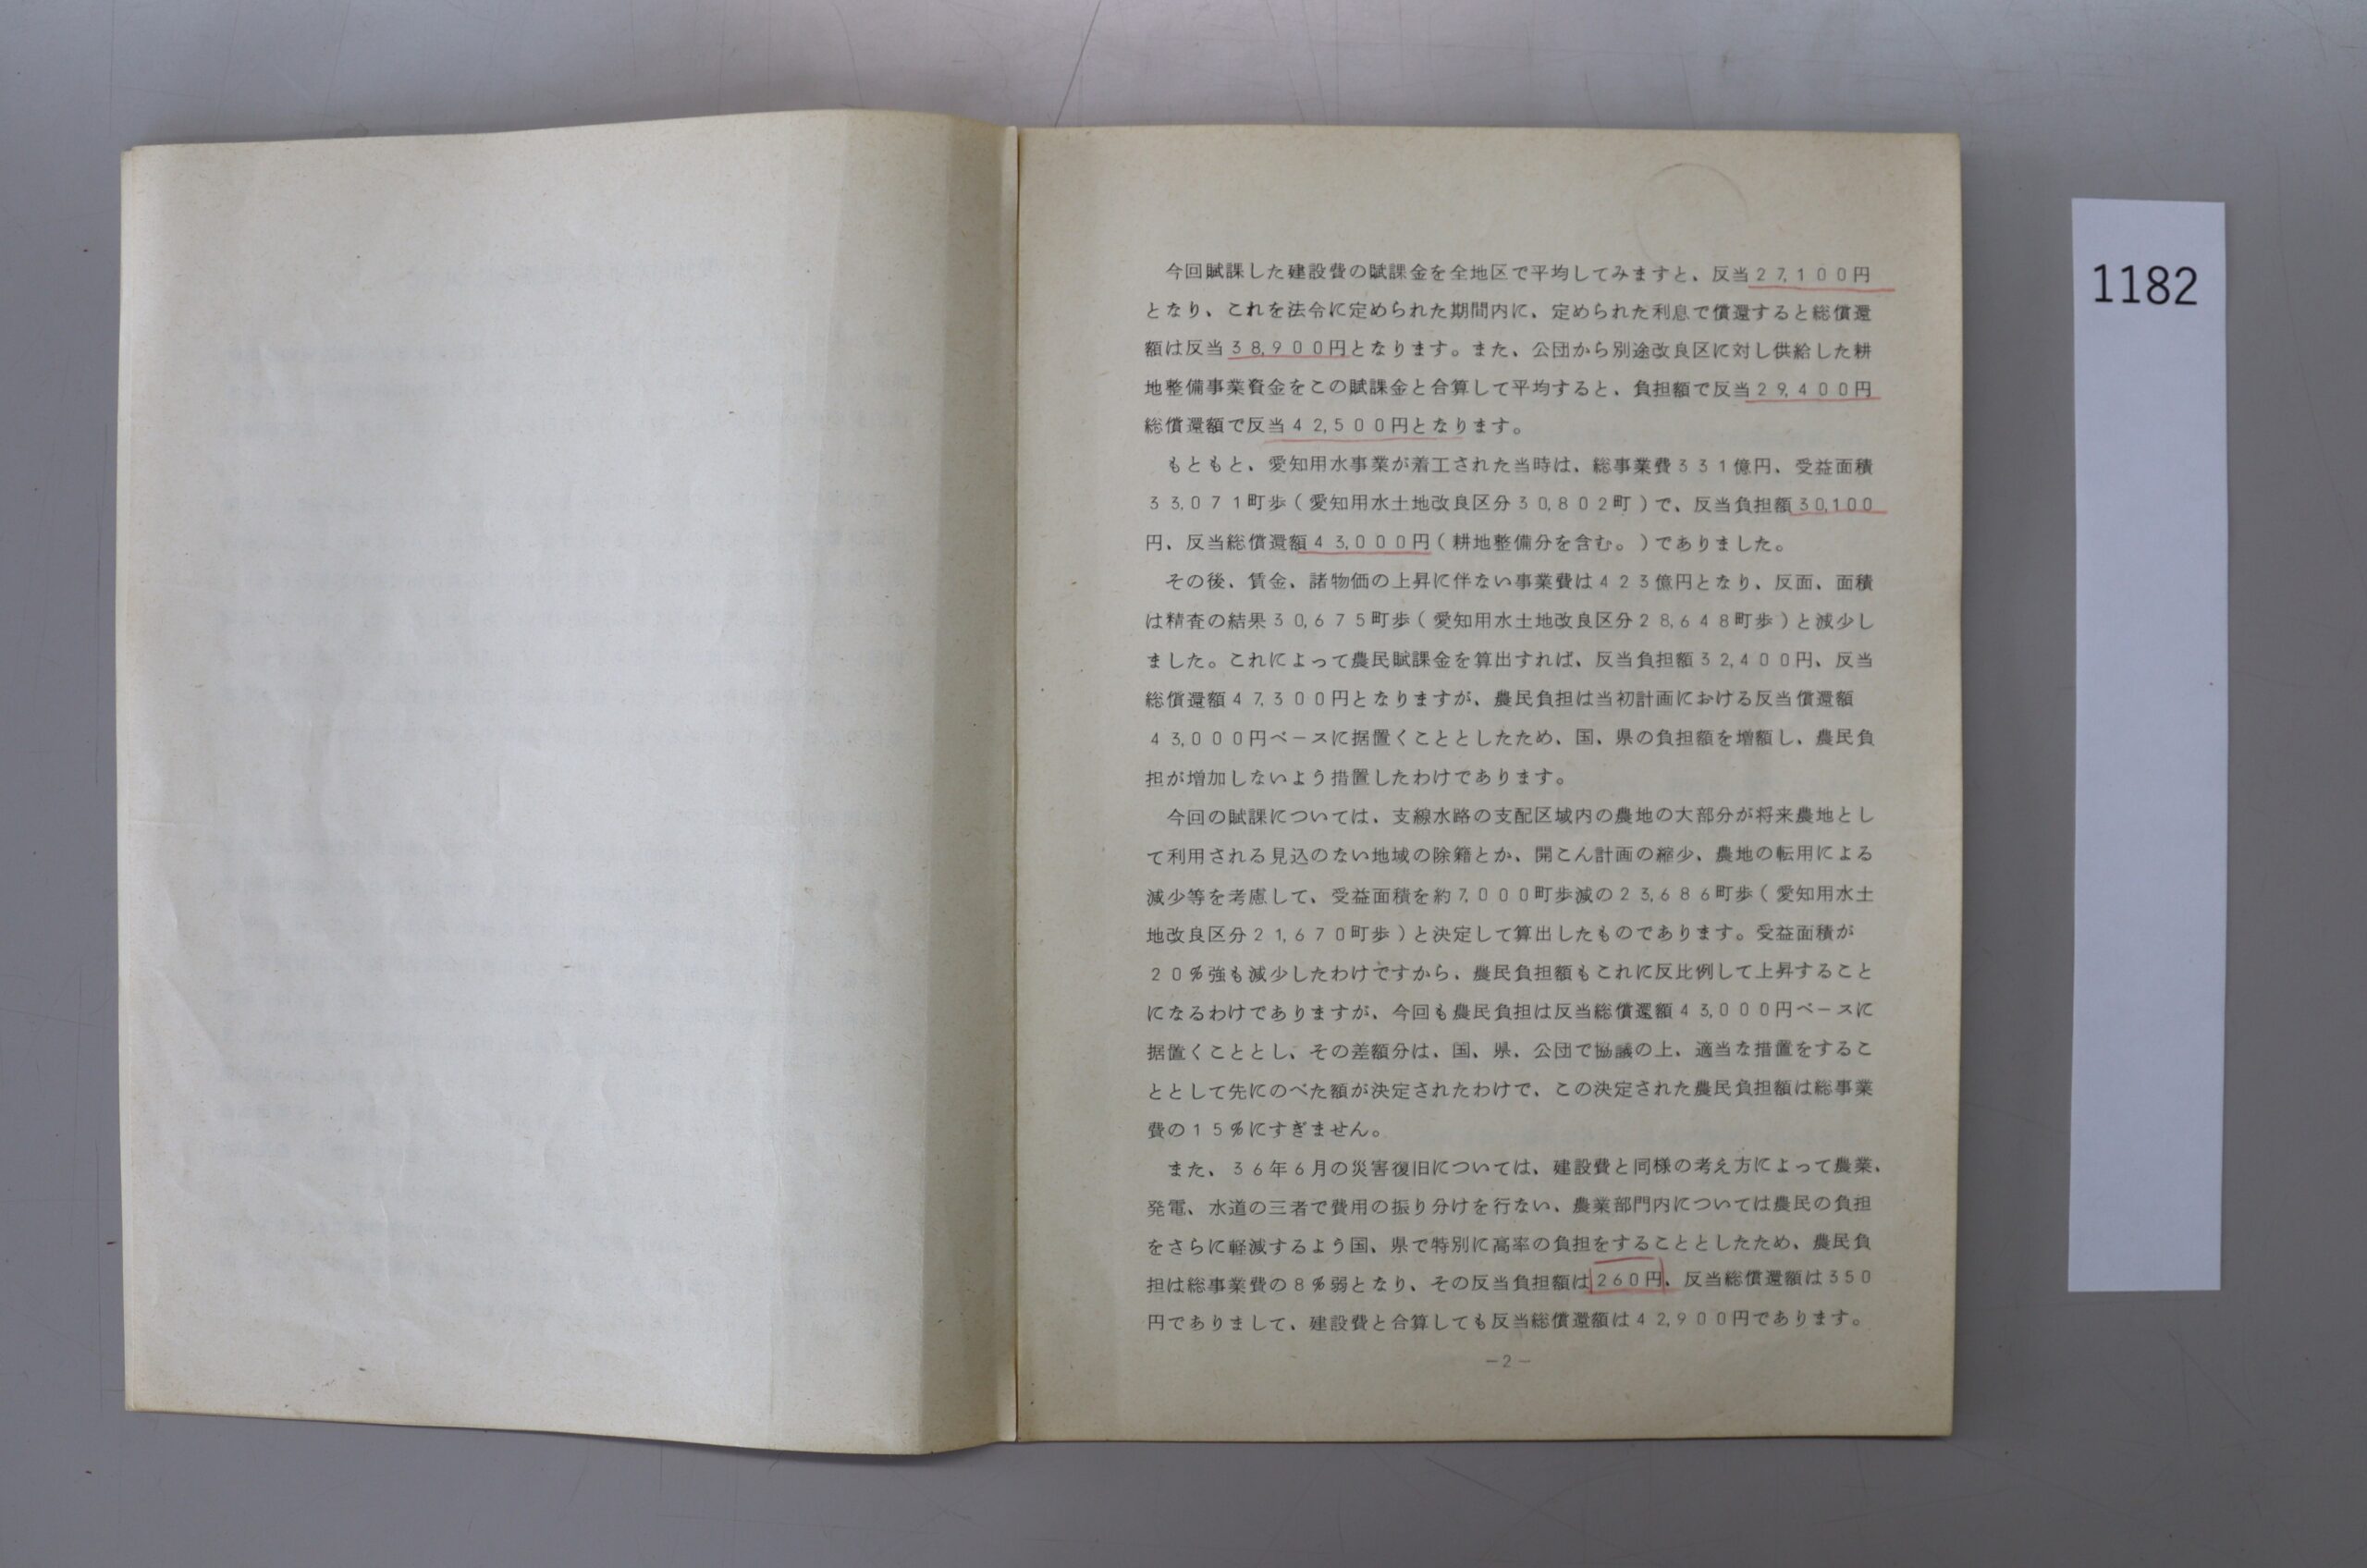 今回賦課した建設費の賦課金を全地区で平均してみますと、反当27,100円
となり、これを法令に定められた期間内に、定められた利息で償還すると総償還
額は反当38,900円となります。また、公団から別途改良区に対し供給した耕
地整備事業資金をこの賦課金と合算して平均すると、負担額で反当29,400円
総償還額で反当42,500円となります。
もともと、愛知用水事業が着工された当時は、総事業費331億円、受益面積
33,071町歩(愛知用水土地改良区分30,802町)で、反当負担額30,100
円、反当総償還額43,000円(耕地整備分を含む。)でありました。
その後、賃金、諸物価の上昇に伴ない事業費は423億円となり、反面、面積
は精査の結果30,675町歩(愛知用水土地改良区分28,648町歩)と減少し
ました。これによって農民賦課金を算出すれば、反当負担額32,400円、反当
総償還額47,300円となりますが、農民負担は当初計画における反当償還額
43,000円ベースに据置くこととしたため、国、県の負担額を増額し、農民負
担が増加しないよう措置したわけであります。
今回の賦課については、支線水路の支配区域内の農地の大部分が将来農地とし
て利用される見込のない地域の除籍とか、開こん計画の縮少、農地の転用による
減少等を考慮して、受益面積を約7,000町歩減の23,686町歩(愛知用水土
地改良区分21,670町歩)と決定して算出したものであります。受益面積が
20%強も減少したわけですから、農民負担額もこれに反比例して上昇すること
になるわけでありますが、今回も農民負担は反当総償還額43,000円ベースに
据置くこととし、その差額分は、国、県、公団で協議の上、適当な措置をするこ
ととして先にのべた額が決定されたわけで、この決定された農民負担額は総事業
費の15%にすぎません。
また、36年6月の災害復旧については、建設費と同様の考え方によって農業、
発電、水道の三者で費用の振り分けを行ない、農業部門内については農民の負担
をさらに軽減するよう国、県で特別に高率の負担をすることとしたため、農民負
担は総事業費の8%弱となり、その反当負担額は260円、反当総償還額は350
円でありまして、建設費と合算しても反当総償還額は42,900円であります。
-2-
1182